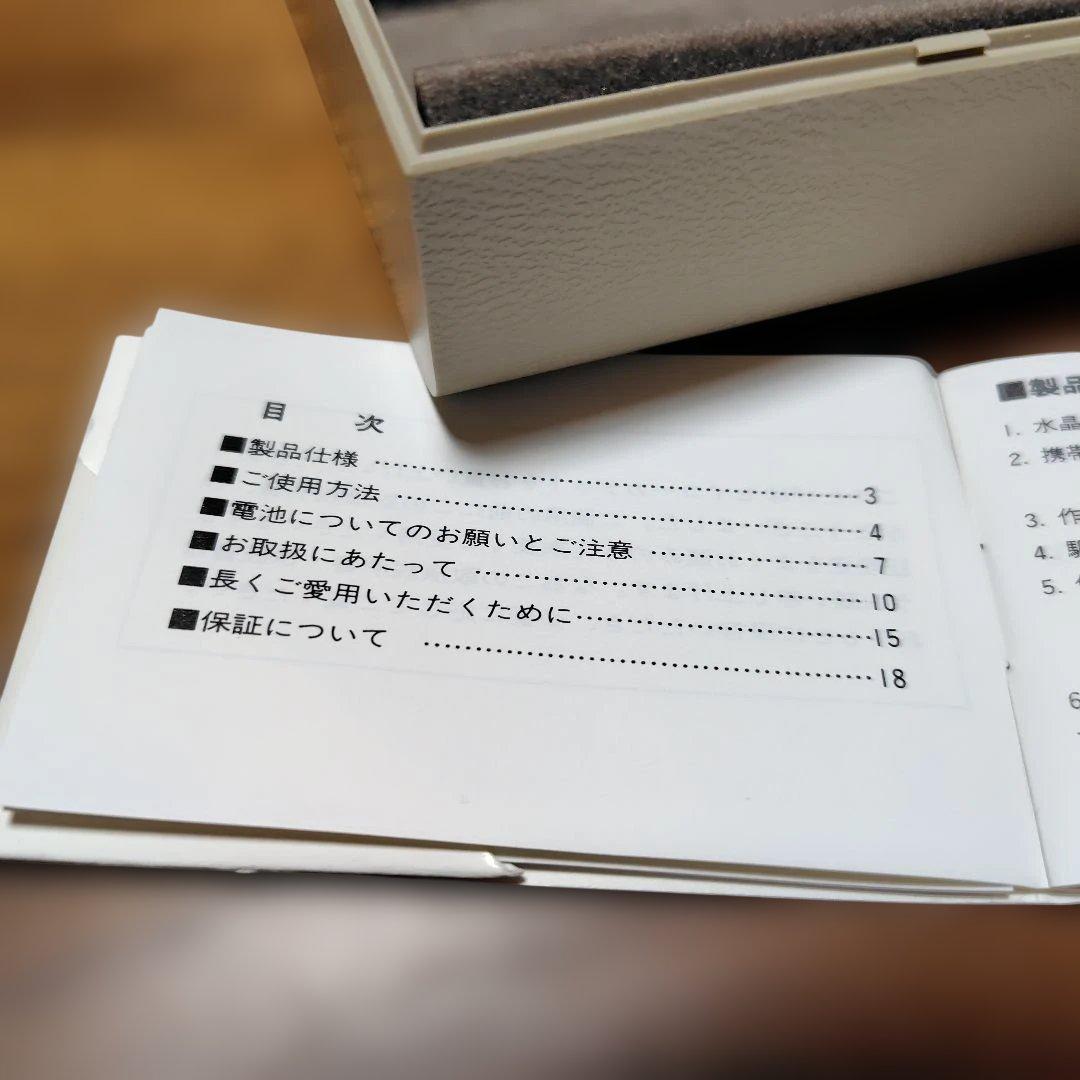 目 次
■製品仕様 ………………………………………… 3
■ご使用方法 ………………………………………… 4
■電池についてのお願いとご注意 ………………… 7
■お取扱にあたって ………………………………… 10
■長くご愛用いただくために ……………………… 15
■保証について ……………………………………… 18
■製品
1. 水晶
2. 携帯
3. 作
4.
5.
6